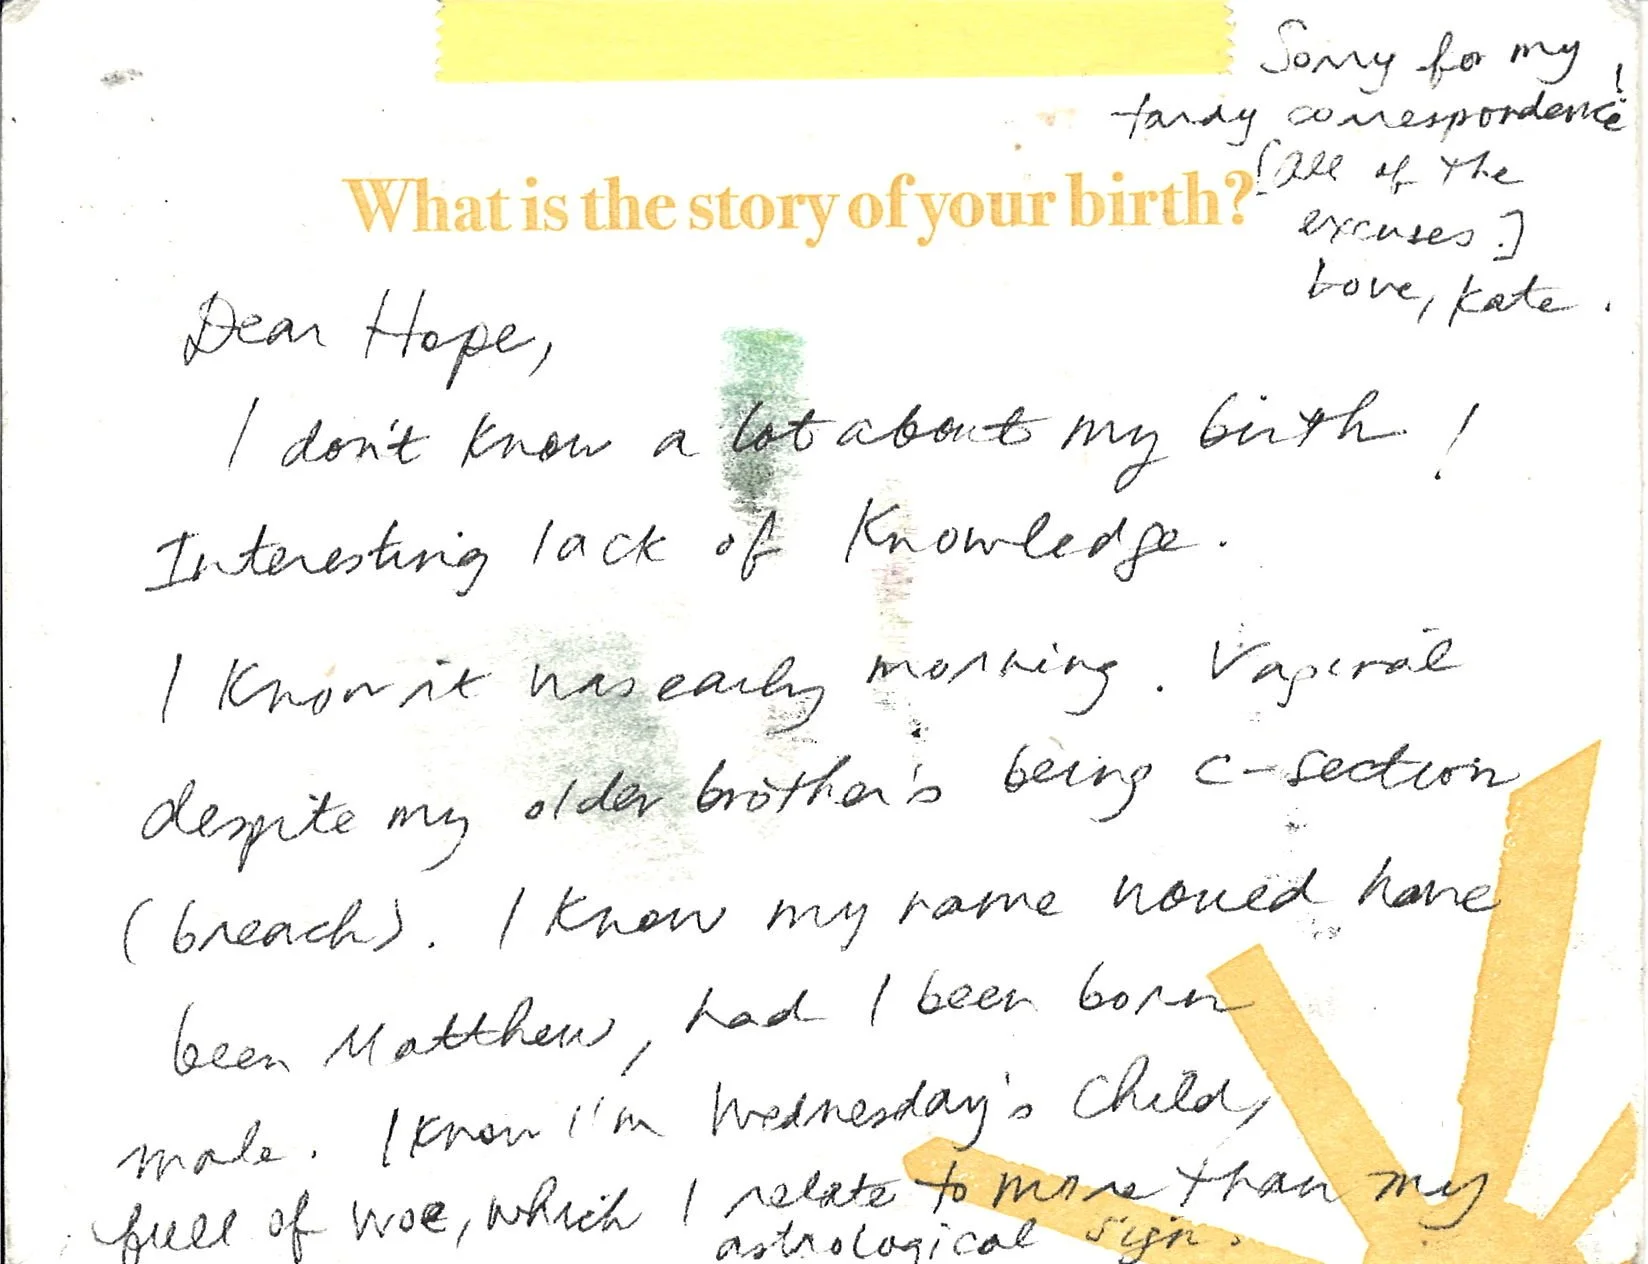 What is the story of your birth?
Sorry for my
tardy correspondence!
[All of the
excuses.]
Love, Kate.
Dear Hope,
I don't know a lot about my birth!
Interesting lack of knowledge.
I know it was early morning. Vaginal
despite my older brother's being c-section
(breach). I know my name would have
been Matthew, had I been born
male. I know I'm Wednesday's Child,
full of woe, which I relate to more than my
astrological sign.